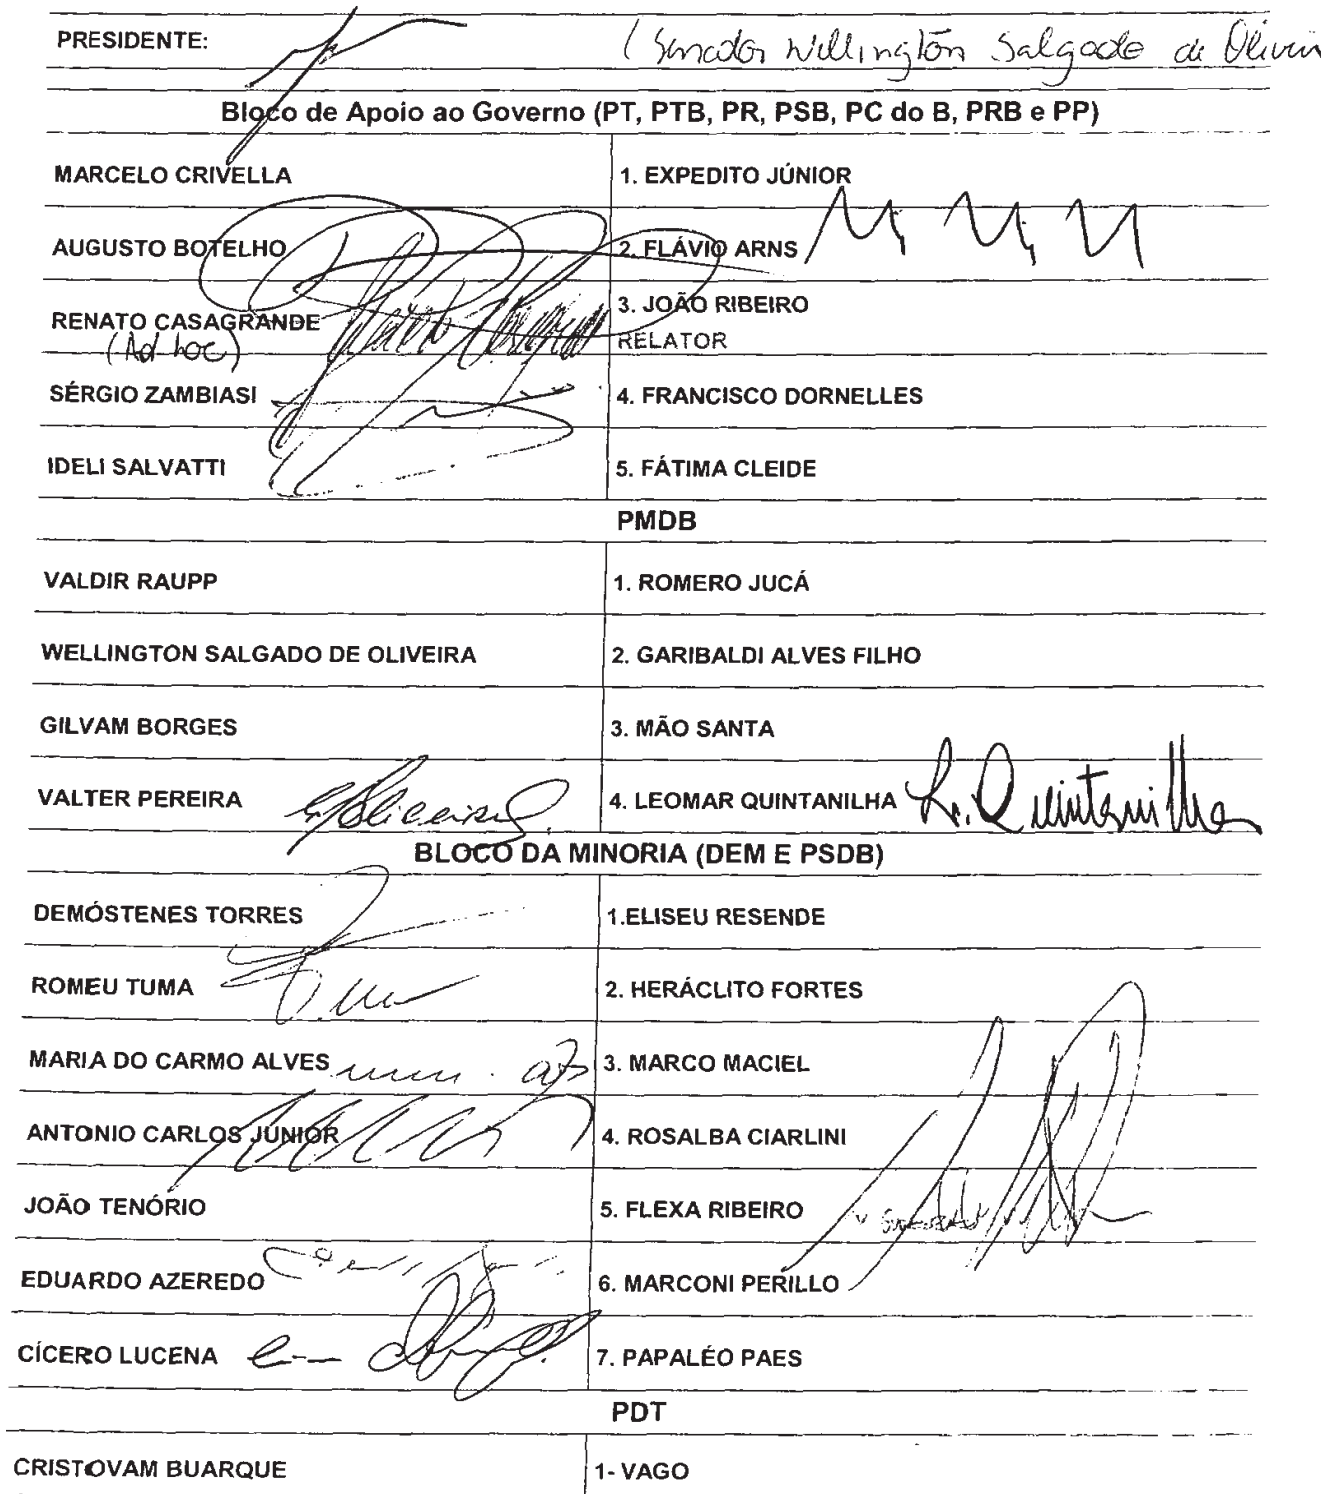 PRESIDENTE: (Senador Wellington Salgado de Oliveira
Bloco de Apoio ao Governo (PT, PTB, PR, PSB, PC do B, PRB e PP)
MARCELO CRIVELLA 1. EXPEDITO JÚNIOR
AUGUSTO BOTELHO 2. FLÁVIO ARNS
RENATO CASAGRANDE 3. JOÃO RIBEIRO
(Ad hoc) RELATOR
SÉRGIO ZAMBIASI 4. FRANCISCO DORNELLES
IDELI SALVATTI 5. FÁTIMA CLEIDE
PMDB
VALDIR RAUPP 1. ROMERO JUCÁ
WELLINGTON SALGADO DE OLIVEIRA 2. GARIBALDI ALVES FILHO
GILVAM BORGES 3. MÃO SANTA
VALTER PEREIRA 4. LEOMAR QUINTANILHA L. Quintanilha
BLOCO DA MINORIA (DEM E PSDB)
DEMÓSTENES TORRES 1.ELISEU RESENDE
ROMEU TUMA 2. HERÁCLITO FORTES
MARIA DO CARMO ALVES 3. MARCO MACIEL
ANTONIO CARLOS JÚNIOR 4. ROSALBA CIARLINI
JOÃO TENÓRIO 5. FLEXA RIBEIRO
EDUARDO AZEREDO 6. MARCONI PERILLO
CÍCERO LUCENA 7. PAPALÉO PAES
PDT
CRISTOVAM BUARQUE 1- VAGO